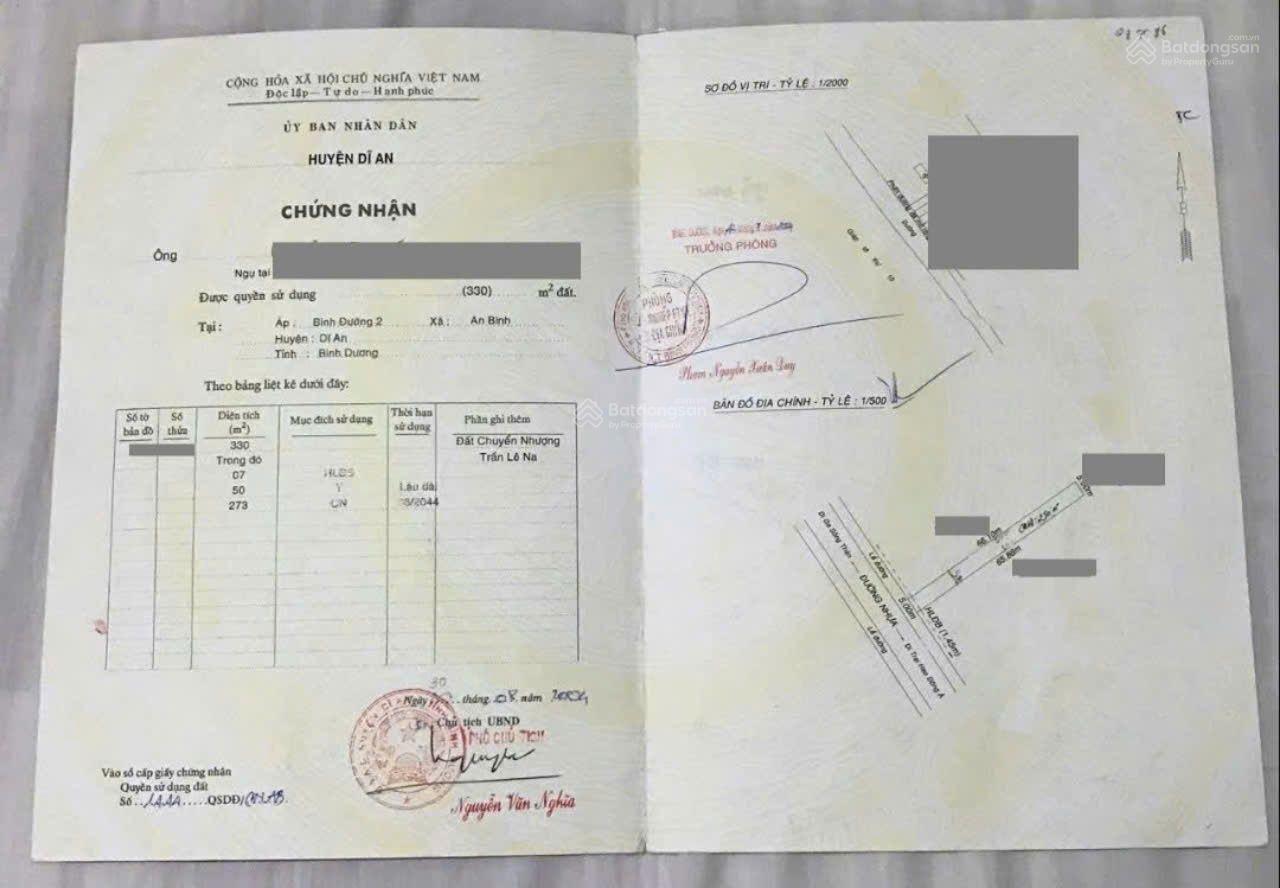 CỘNG HÒA XÃ HỘI CHỦ NGHĨA VIỆT NAM
Độc lập — Tự do — Hạnh phúc
ỦY BAN NHÂN DÂN
HUYỆN DĨ AN
CHỨNG NHẬN
Ông
Ngụ tại
Được quyền sử dụng (330) m² đất.
Tại : Ấp : Bình Đường 2 Xã : An Bình
Huyện : Dĩ An
Tỉnh : Bình Dương
Theo bảng liệt kê dưới đây:
Số tờ bản đồ Số thửa Diện tích (m²) Mục đích sử dụng Thời hạn sử dụng Phần ghi thêm
330 Đất Chuyển Nhượng
Trong đó Trần Lê Na
07 HLĐB
50 T Lâu dài
273 CN /2044
30
Ngày tháng 08 năm 2004
Chủ tịch UBND
PHÓ CHỦ TỊCH
Nguyễn Văn Nghĩa
Vào sổ cấp giấy chứng nhận
Quyền sử dụng đất
Số QSDĐ/
Batdongsan.com.vn
by PropertyGuru
SƠ ĐỒ VỊ TRÍ - TỶ LỆ : 1/2000
TRƯỞNG PHÒNG
PHÒNG
Phạm Nguyễn Xuân Duy
Batdongsan
by PropertyGuru
BẢN ĐỒ ĐỊA CHÍNH - TỶ LỆ : 1/500
5.00m
66.10m
65.86m
Đi Ga Sóng Thần
Lề đường
ĐƯỜNG NHỰA
5.00m
HLĐB (1.45m)
Lề đường
Đi Trại Heo Đông Á